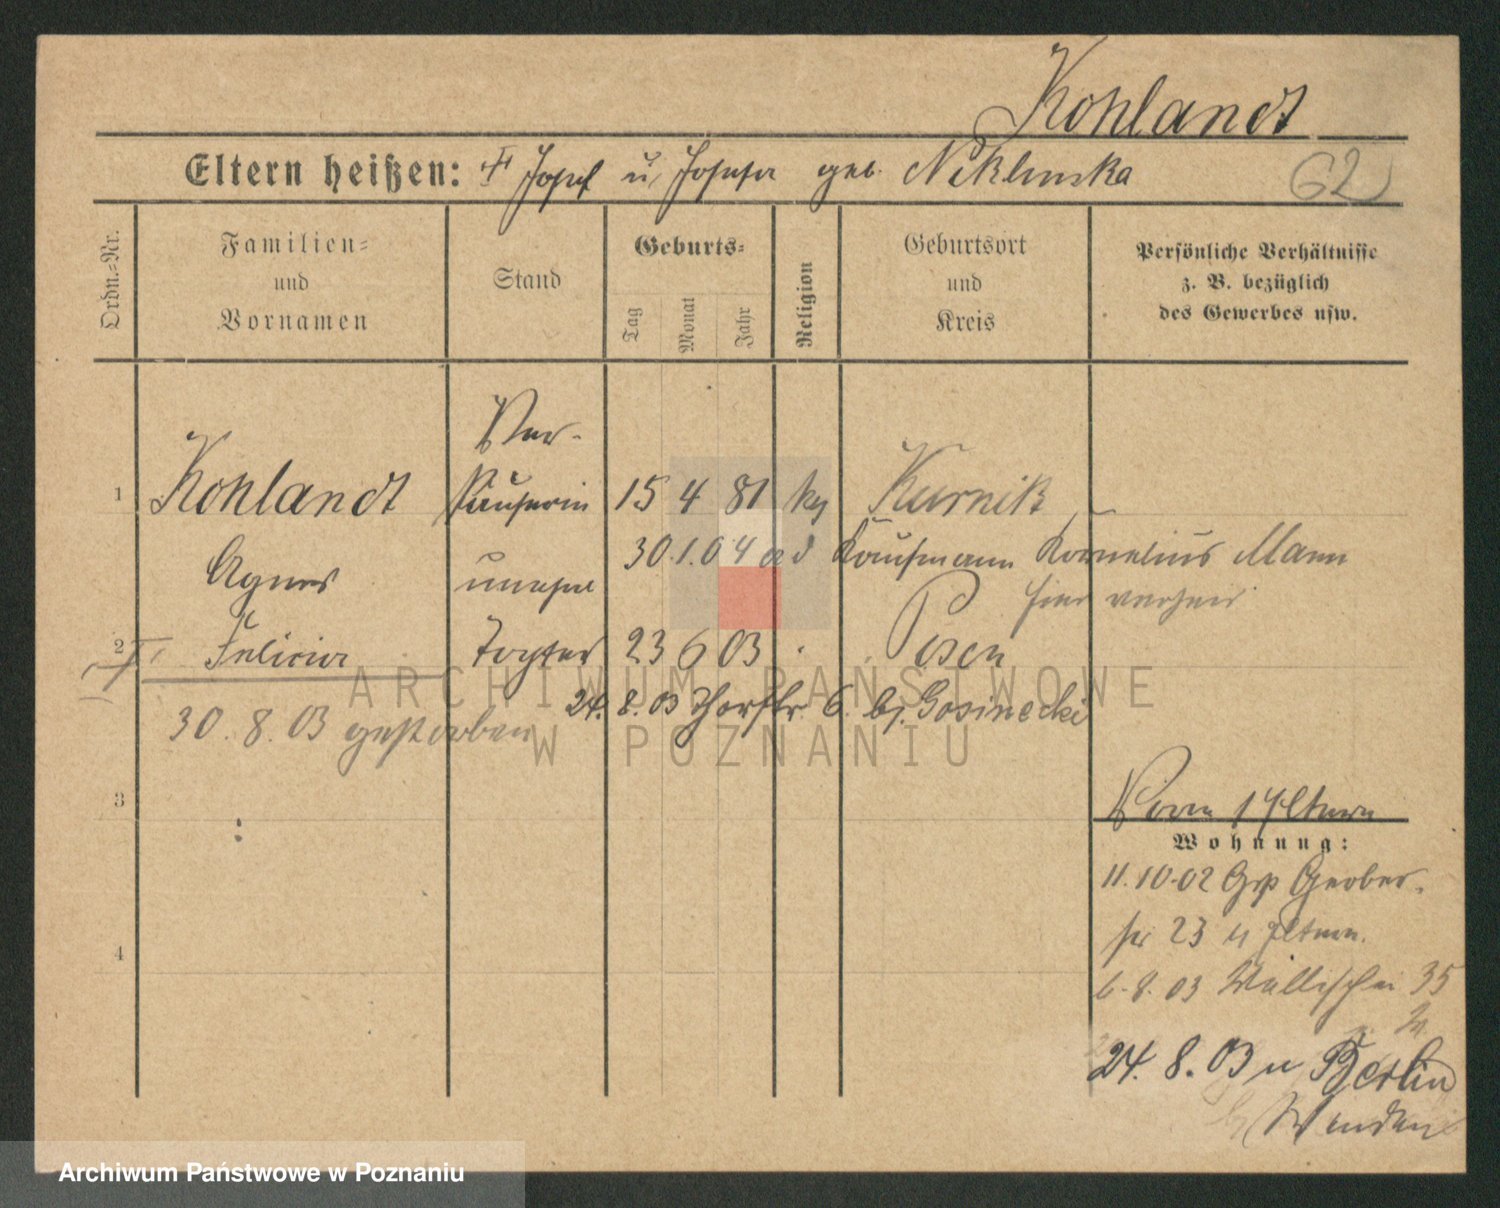 Kohlandt
Eltern heißen: † Josef u. Josefa geb. Niklinska
62
Ordn.=Nr.
Familien=
und
Vornamen
Stand
Geburts=
Tag
Monat
Jahr
Religion
Geburtsort
und
Kreis
Persönliche Verhältnisse
z. B. bezüglich
des Gewerbes usw.
Ver-
1 Kohlandt käuferin 15 4 81 kg Kurnik
30.1.04 ad Kaufmann Kornelius Mann
Agnes unehel
hier verheir
2 Felicia Tochter 23 6 03 Posen
24. 8. 03 Thorstr 6. bj. Gosinecki
30. 8. 03 gestorben
3
Vorm 1 Eltern
Wohnung:
11.10.02 Gerber-
str 23 Eltern.
4
6.8.03 Wallischei 35
24. 8. 03 n Berlin
ARCHIWUM PAŃSTWOWE
W POZNANIU
Archiwum Państwowe w Poznaniu